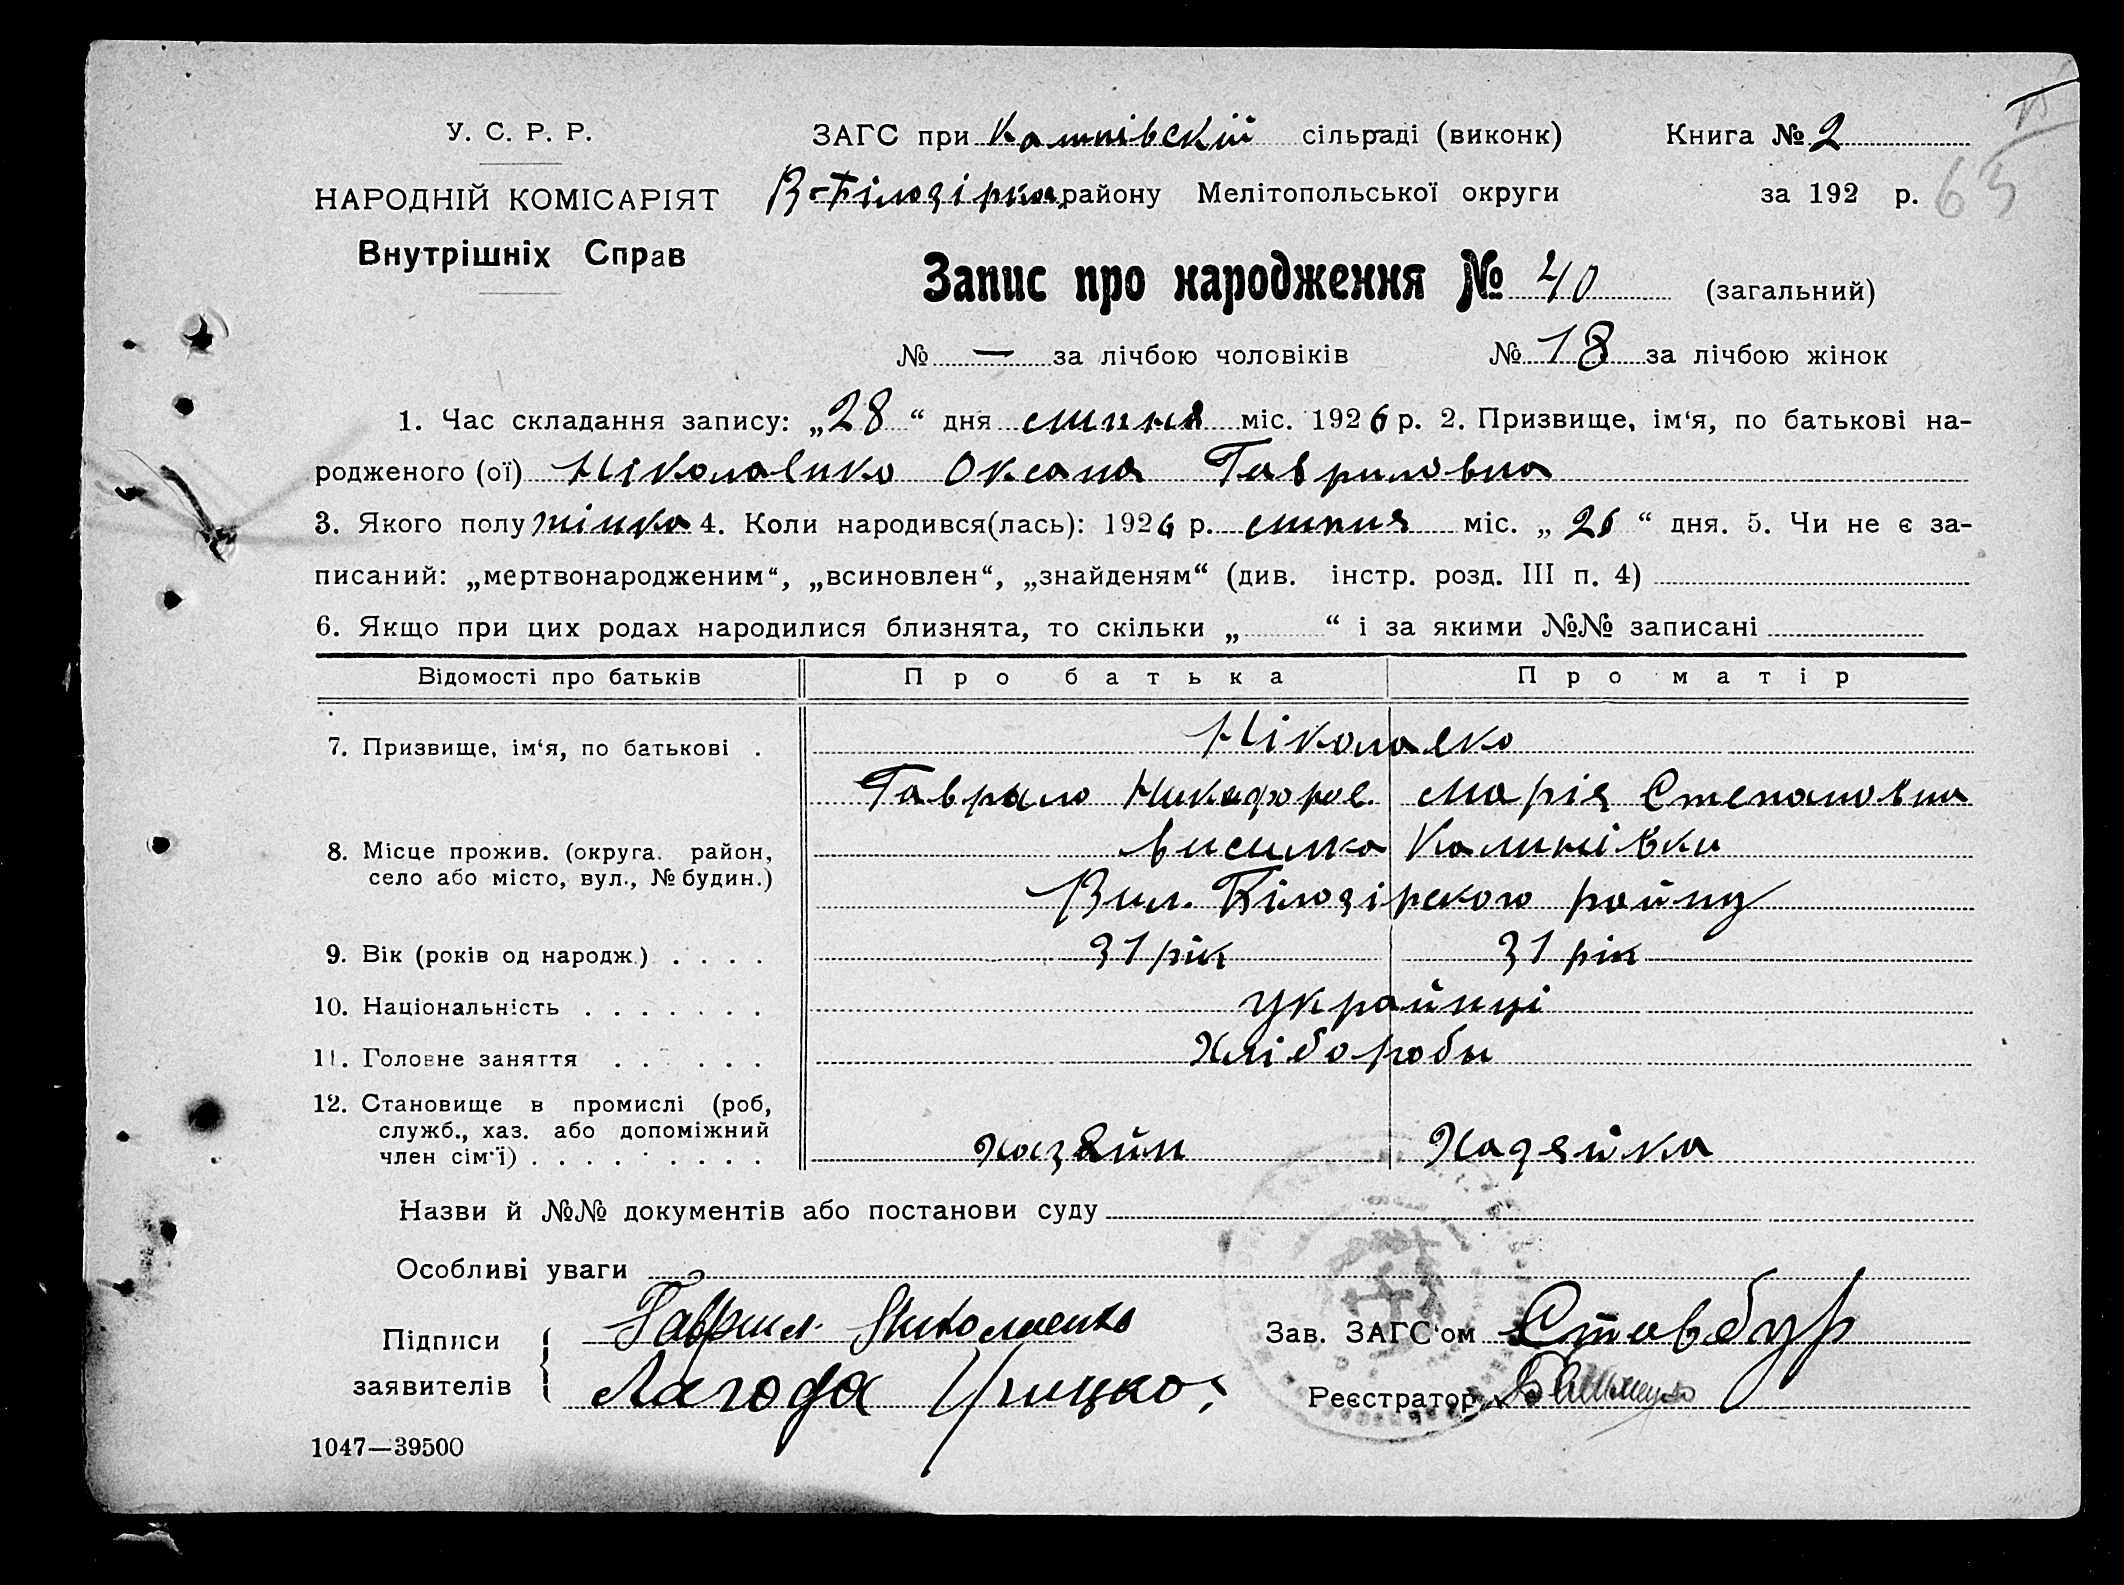 У. С. Р. Р.
НАРОДНІЙ КОМІСАРІЯТ
Внутрішніх Справ
ЗАГС при сільраді (виконк)
Книга № 2
В-Білозірки району Мелітопольської округи
за 192 р. 63
Запис про народження № 40 (загальний)
№ — за лічбою чоловіків № 18 за лічбою жінок
1. Час складання запису: „28“ дня липня міс. 1926 р. 2. Призвище, ім‘я, по батькові на-
родженого (ої) Ніколаенко Оксана Гавриловна
3. Якого полу жінка 4. Коли народився(лась): 1926 р. липня міс. „26“ дня. 5. Чи не є за-
писаний: „мертвонародженим“, „всиновлен“, „знайденям“ (див. інстр. розд. III п. 4)
6. Якщо при цих родах народилися близнята, то скільки „ “ і за якими №№ записані
Відомості про батьків Про батька Про матір
7. Призвище, ім‘я, по батькові .
Гаврило Никифоров. Марія Степановна
8. Місце прожив. (округа. район, висилка Калинівки
село або місто, вул., № будин.) Вил. Білозірского району
9. Вік (років од народж.) . . . . 31 рік 31 рік
10. Національність . . . . . . . украйнці
11. Головне заняття . . . . . . Хлібороби
12. Становище в промислі (роб,
служб., хаз. або допоміжний
член сім‘ї) . . . . . . . . . . хазяйн Хазяйка
Назви й №№ документів або постанови суду
Особливі уваги
Підписи
заявителів
Гаврил Николаенко
Лагода Грицко;
Зав. ЗАГС‘ом Стовбур
Реєстратор
1047—39500